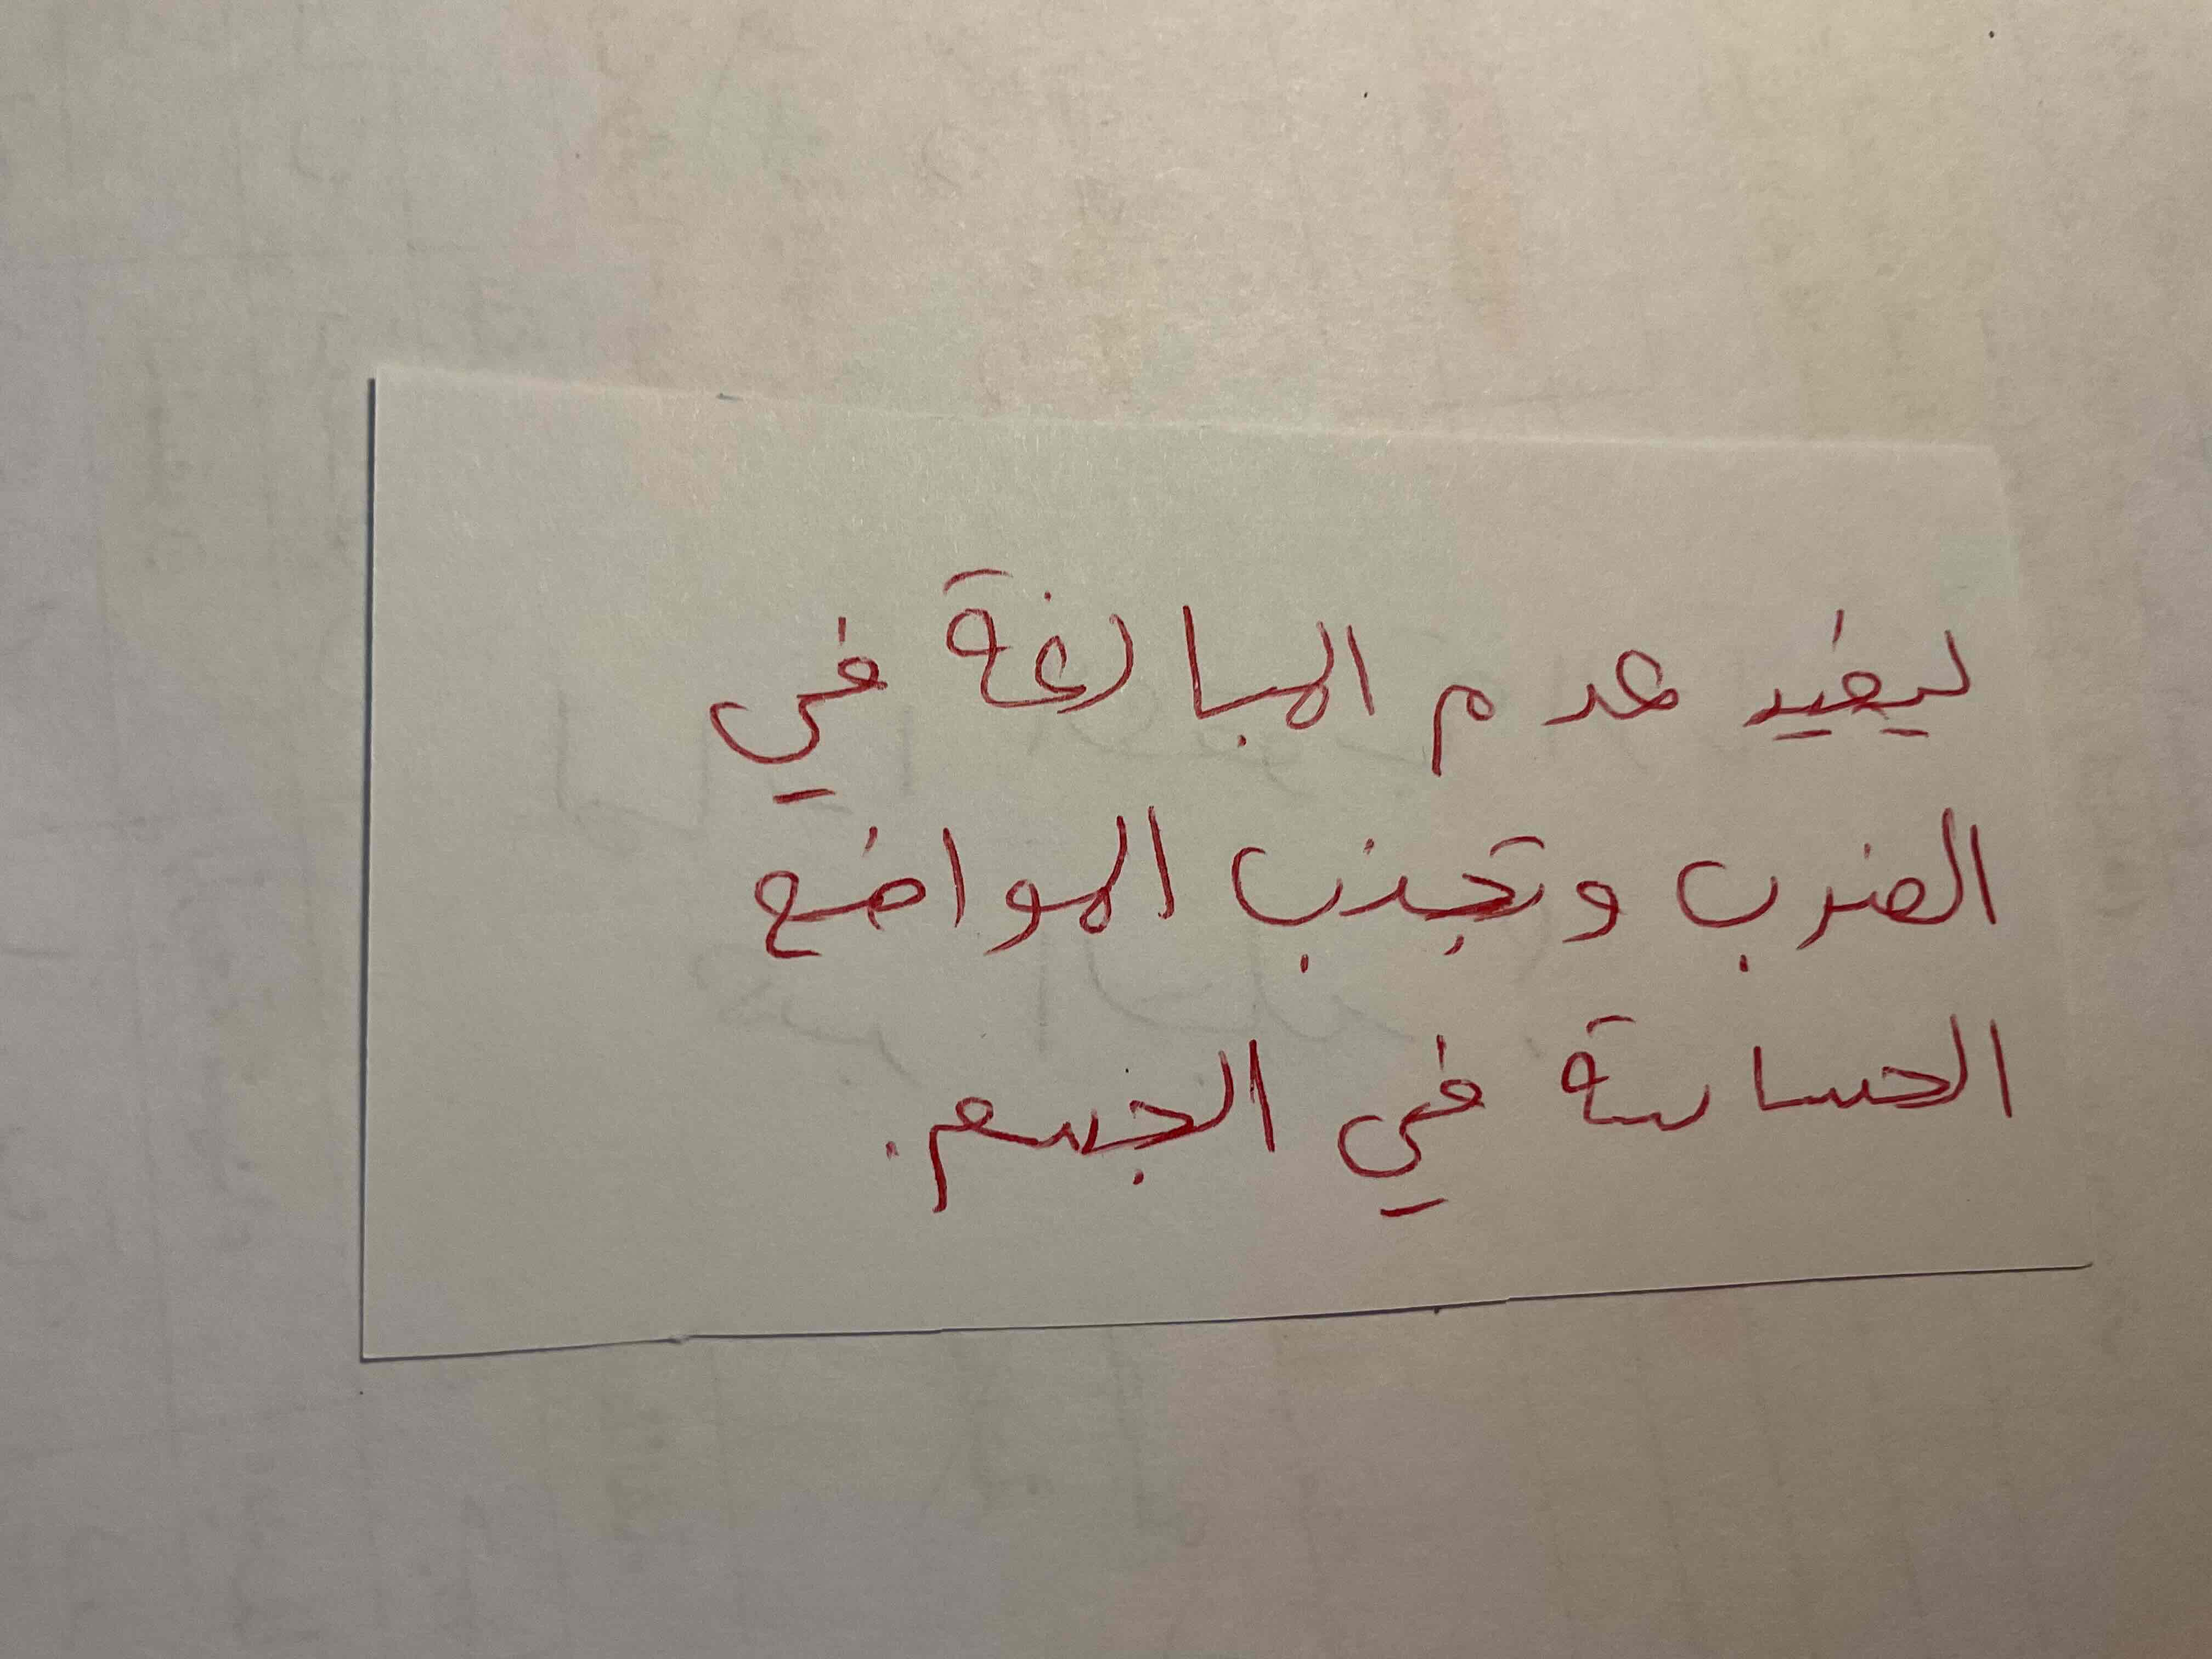 ليفيد عدم المبالغة في
الضرب وتجنب المواضع
الحساسة في الجسم.